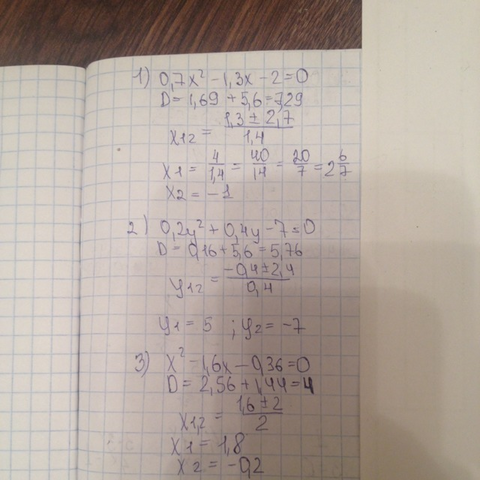 1) 0,7x² - 1,3x - 2 = 0
D = 1,69 + 5,6 = 7,29
x1,2 = (1,3 ± 2,7)/1,4
x1 = 4/1,4 = 40/14 = 20/7 = 2 6/7
x2 = -1
2) 0,2y² + 0,4y - 7 = 0
D = 0,16 + 5,6 = 5,76
y1,2 = (-0,4 ± 2,4)/0,4
y1 = 5 ; y2 = -7
3) x² - 1,6x - 0,36 = 0
D = 2,56 + 1,44 = 4
x1,2 = (1,6 ± 2)/2
x1 = 1,8
x2 = -0,2